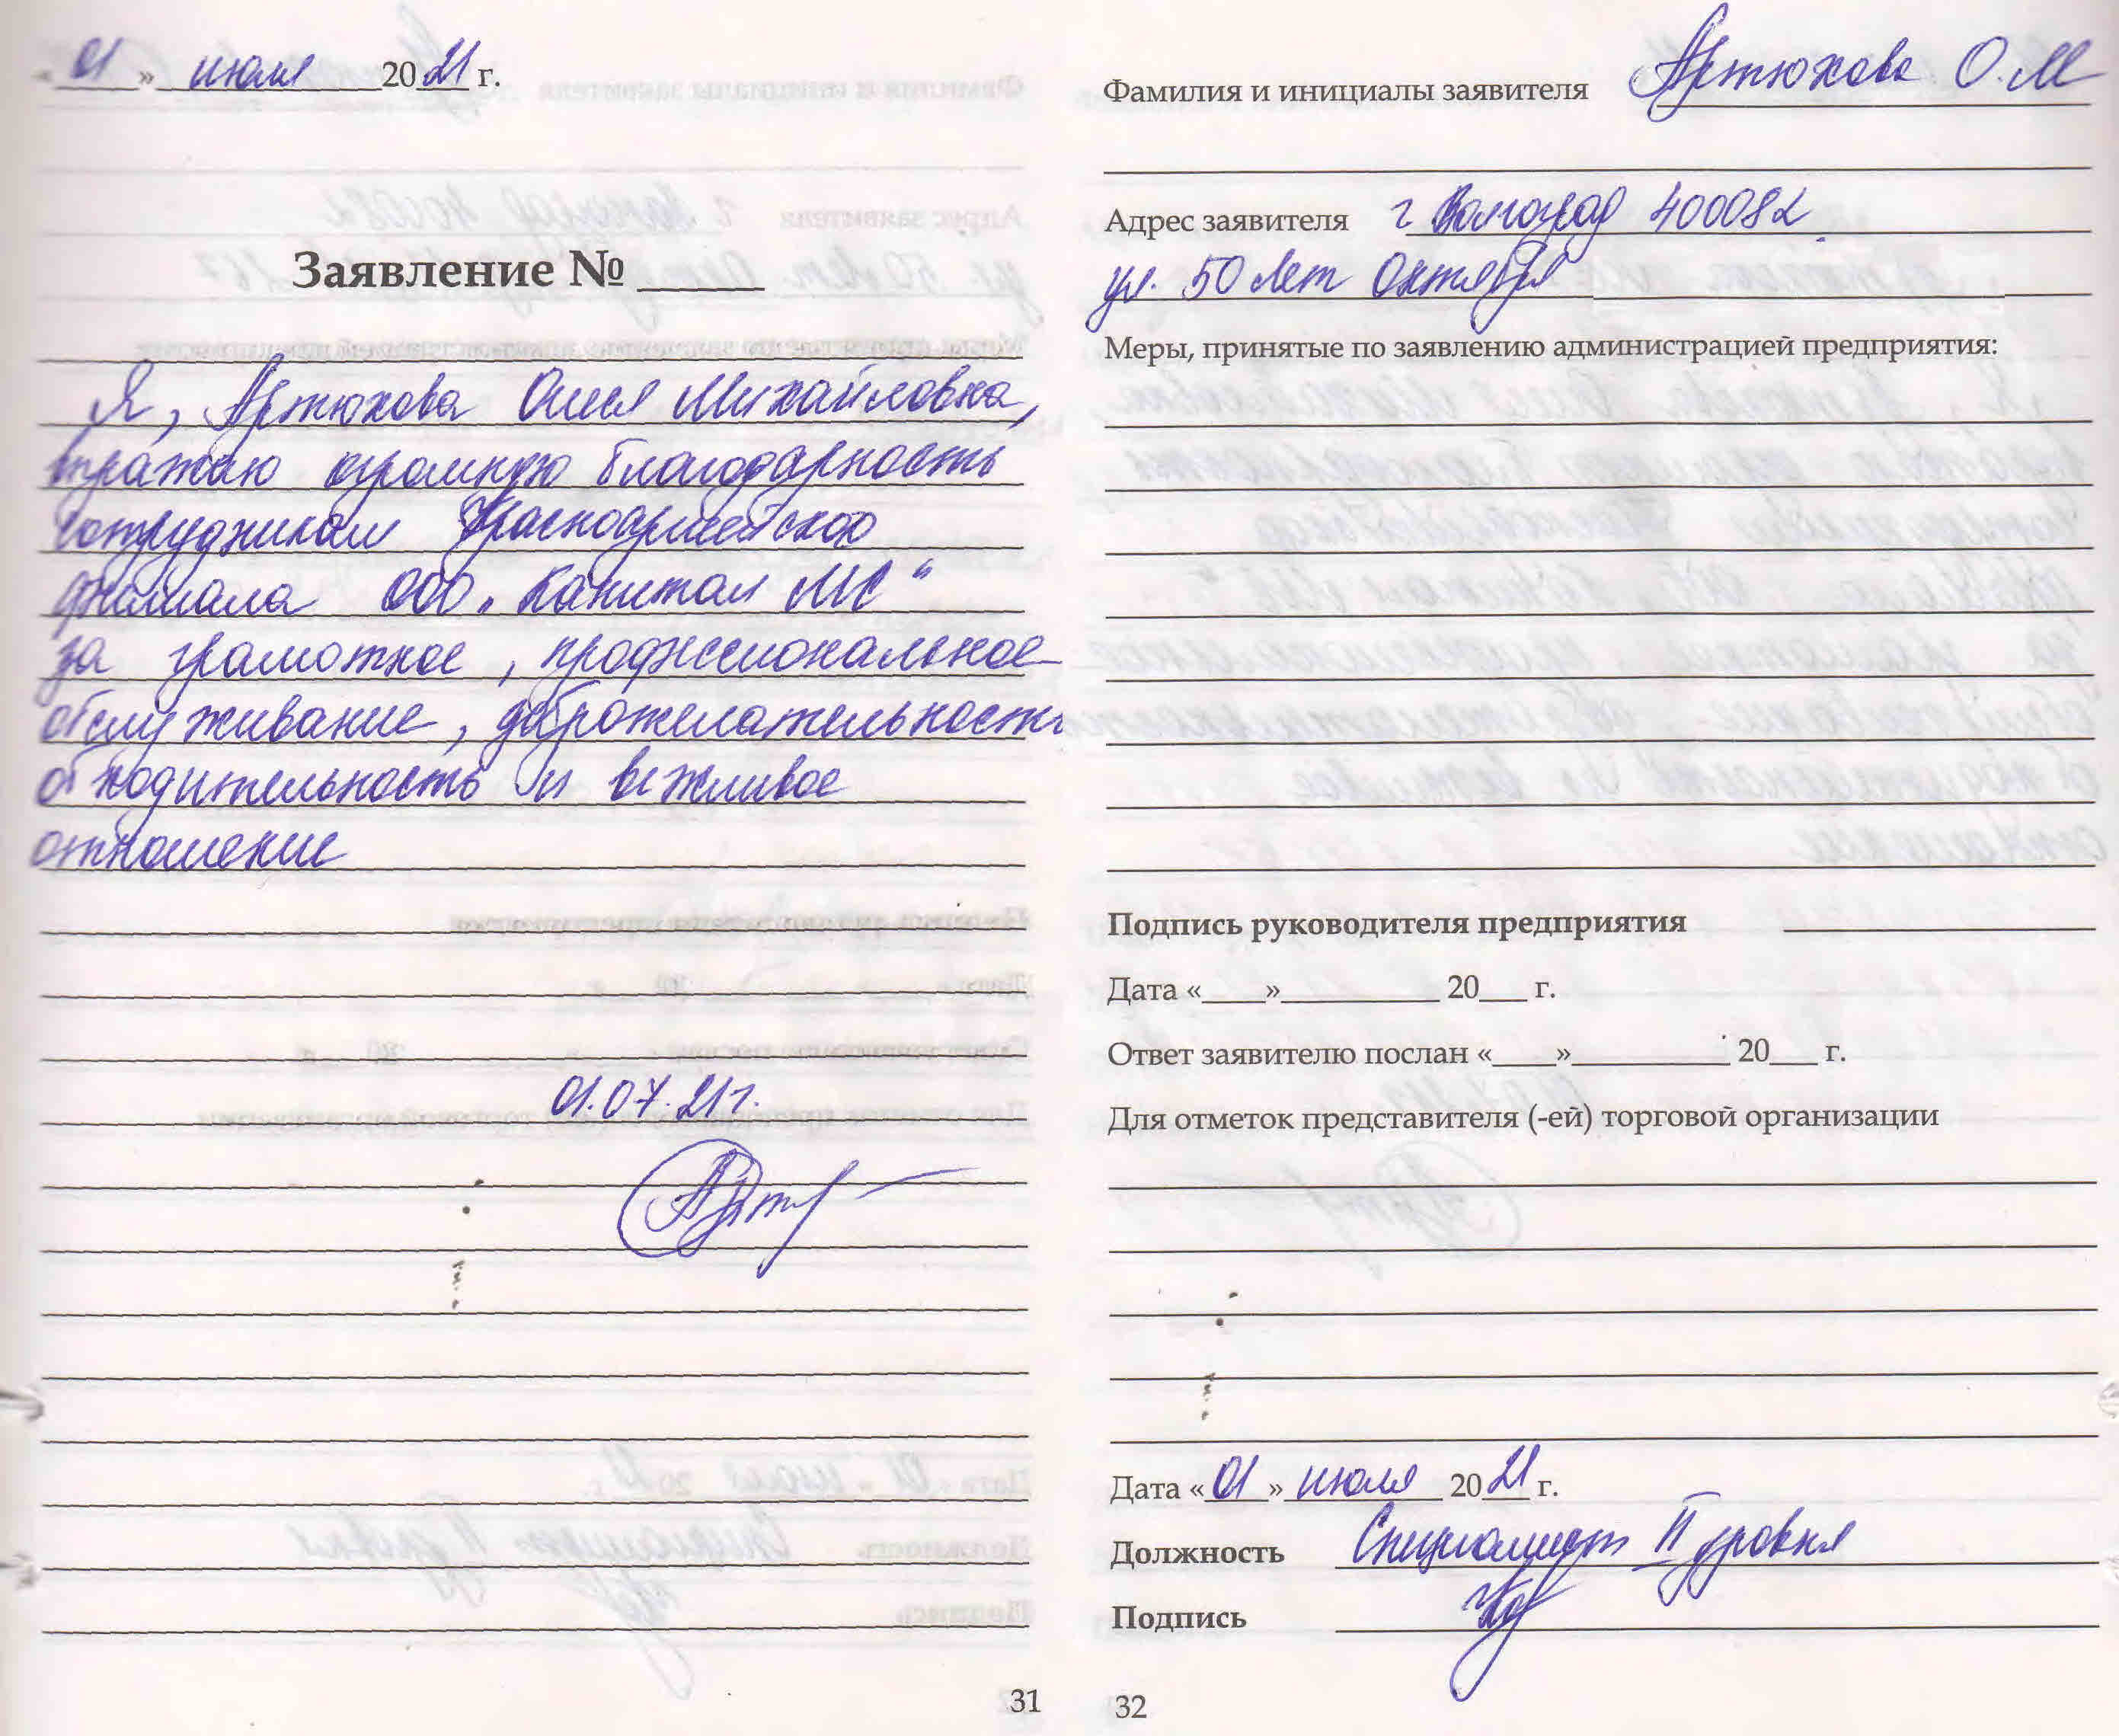 « 01 » июля 2021 г.
Заявление № ____
Я, Артюхова Олеся Михайловна,
выражаю огромную благодарность
сотрудникам Красноармейского
филиала ООО „Капитал МС“
за грамотное, профессиональное
обслуживание, доброжелательность
обходительность и вежливое
отношение
01.07.21г.
31
Фамилия и инициалы заявителя Артюхова О.М
Адрес заявителя г Волгоград 400082
ул. 50 лет Октября
Меры, принятые по заявлению администрацией предприятия:
Подпись руководителя предприятия
Дата «____»__________ 20___ г.
Ответ заявителю послан «____»__________ 20___ г.
Для отметок представителя (-ей) торговой организации
Дата «01» июля 2021 г.
Должность Специалист II уровня
Подпись
32